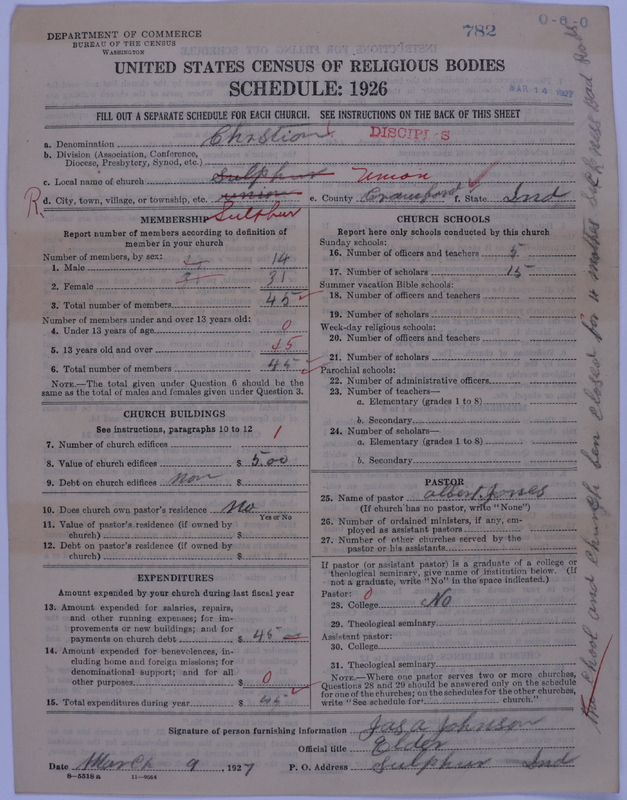 782
0-6-0
DEPARTMENT OF COMMERCE
BUREAU OF THE CENSUS
WASHINGTON
UNITED STATES CENSUS OF RELIGIOUS BODIES
SCHEDULE: 1926
MAR 14 1927
FILL OUT A SEPARATE SCHEDULE FOR EACH CHURCH. SEE INSTRUCTIONS ON THE BACK OF THIS SHEET
a. Denomination Christian DISCIPLES
b. Division (Association, Conference, Diocese, Presbytery, Synod, etc.)
c. Local name of church Sulphur Union
d. City, town, village, or township, etc. Union Sulphur e. County Crawford f. State Ind
R.
MEMBERSHIP
Report number of members according to definition of member in your church
Number of members, by sex:
1. Male 14
2. Female 31 31
3. Total number of members 45
Number of members under and over 13 years old:
4. Under 13 years of age 0
5. 13 years old and over 45
6. Total number of members 45
NOTE.—The total given under Question 6 should be the same as the total of males and females given under Question 3.
CHURCH BUILDINGS
See instructions, paragraphs 10 to 12
7. Number of church edifices 1
8. Value of church edifices $ 5.00
9. Debt on church edifices non $
10. Does church own pastor's residence No
Yes or No
11. Value of pastor's residence (if owned by church) $
12. Debt on pastor's residence (if owned by church) $
EXPENDITURES
Amount expended by your church during last fiscal year
13. Amount expended for salaries, repairs, and other running expenses; for improvements or new buildings; and for payments on church debt $ 45
14. Amount expended for benevolences, including home and foreign missions; for denominational support; and for all other purposes $ 0
15. Total expenditures during year $ 45
CHURCH SCHOOLS
Report here only schools conducted by this church
Sunday schools:
16. Number of officers and teachers 5
17. Number of scholars 15
Summer vacation Bible schools:
18. Number of officers and teachers
19. Number of scholars
Week-day religious schools:
20. Number of officers and teachers
21. Number of scholars
Parochial schools:
22. Number of administrative officers
23. Number of teachers—
a. Elementary (grades 1 to 8)
b. Secondary
24. Number of scholars—
a. Elementary (grades 1 to 8)
b. Secondary
PASTOR
25. Name of pastor albert Jones
(If church has no pastor, write "None")
26. Number of ordained ministers, if any, employed as assistant pastors
27. Number of other churches served by the pastor or his assistants
If pastor (or assistant pastor) is a graduate of a college or theological seminary, give name of institution below. (If not a graduate, write "No" in the space indicated.)
Pastor: 0
28. College No
29. Theological seminary
Assistant pastor:
30. College
31. Theological seminary
NOTE.—Where one pastor serves two or more churches, Questions 28 and 29 should be answered only on the schedule for one of the churches; on the schedules for the other churches, write "See schedule for church."
Signature of person furnishing information Jas a Johnson
Official title Elder
Date March 9, 1927 P. O. Address Sulphur Ind
8-5518 a 11-9564
School and Church ben closed for 4 months sickness bad Roads